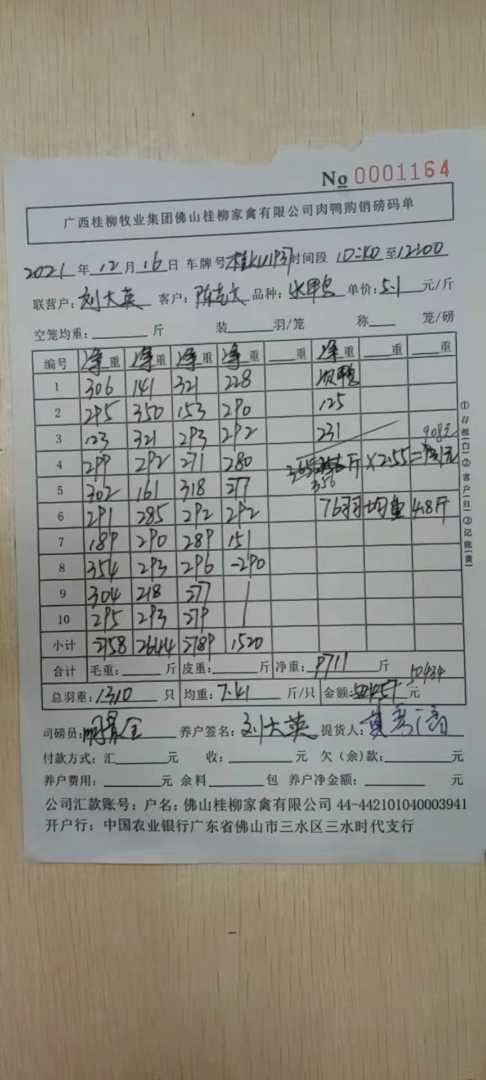 No 0001164
广西桂柳牧业集团佛山桂柳家禽有限公司肉鸭购销磅码单
2021 年 12 月 16 日 车牌号 时间段 10:40 至 12:00
联营户: 刘大英 客户: 品种: 单价: 5.1 元/斤
空笼均重: 斤 装 羽/笼 称 笼/磅
编号 净重 净重 净重 净重 重 净重 重 重
1 306 141 321 228
2 295 350 153 290 125
3 123 321 293 292 231
4 299 292 271 280 斤×2.55=
356 908元
5 302 161 318 277
6 291 285 292 292 76羽 均重 4.8斤
7 189 290 289 151
8 354 293 296 -290
9 304 218 277
10 295 293 279
小计 2758 2644 2789 1520
合计 毛重: 斤 皮重: 斤 净重: 9711 斤
总羽重: 1310 只 均重: 7.41 斤/只 金额: 元
司磅员: 养户签名: 刘大英 提货人:
付款方式: 汇 元 收: 元 欠(余)款: 元
养户费用: 元 余料 包 养户净金额: 元
公司汇款账号: 户名: 佛山桂柳家禽有限公司 44-442101040003941
开户行: 中国农业银行广东省佛山市三水区三水时代支行
①//部(白)②客户(红)③记账(黄)